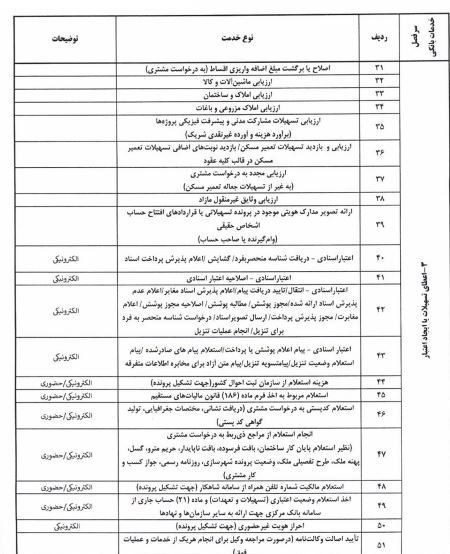 سرفصل
خدمات بانکی
ردیف
نوع خدمت
توضیحات
۳-اعطای تسهیلات یا ایجاد اعتبار
۳۱
اصلاح یا برگشت مبلغ اضافه واریزی اقساط (به درخواست مشتری)
۳۲
ارزیابی ماشین‌آلات و کالا
۳۳
ارزیابی املاک و ساختمان
۳۴
ارزیابی املاک مزروعی و باغات
۳۵
ارزیابی تسهیلات مشارکت مدنی و پیشرفت فیزیکی پروژه‌ها
(برآورد هزینه و آورده غیرنقدی شریک)
۳۶
ارزیابی و بازدید تسهیلات تعمیر مسکن/ بازدید نوبت‌های اضافی تسهیلات تعمیر
مسکن در قالب کلیه عقود
۳۷
ارزیابی مجدد به درخواست مشتری
(به غیر از تسهیلات جعاله تعمیر مسکن)
۳۸
ارزیابی وثایق غیرمنقول مازاد
۳۹
ارائه تصویر مدارک هویتی موجود در پرونده تسهیلاتی یا قراردادهای افتتاح حساب
اشخاص حقیقی
(وام‌گیرنده یا صاحب حساب)
۴۰
اعتباراسنادی - دریافت شناسه منحصربفرد/ گشایش /اعلام پذیرش پرداخت اسناد
الکترونیکی
۴۱
اعتباراسنادی - اصلاحیه اعتبار اسنادی
الکترونیکی
۴۲
اعتباراسنادی - انتقال/تایید دریافت پیام/اعلام پذیرش اسناد مغایر/اعلام عدم
پذیرش اسناد ارائه شده/مجوز پوشش/ مطالبه پوشش/ اصلاحیه مجوز پوشش/ اعلام
مغایرت/ مجوز پذیرش پرداخت/ ارسال تصویراسناد/ درخواست شناسه منحصر به فرد
برای تنزیل/ انجام عملیات تنزیل
الکترونیکی
۴۳
اعتبار اسنادی - پیام اعلام پوشش یا پرداخت/استعلام پیام های صادرشده /پیام
استعلام وضعیت تنزیل/پیام‌تسویه تنزیل/پیام متن آزاد برای مخابره اطلاعات متفرقه
الکترونیکی
۴۴
هزینه استعلام از سازمان ثبت احوال کشور(جهت تشکیل پرونده)
الکترونیکی/حضوری
۴۵
استعلام مربوط به اخذ فرم ماده (۱۸۶) قانون مالیات‌های مستقیم
الکترونیکی/حضوری
۴۶
استعلام کدپستی به درخواست مشتری (دریافت نشانی، مختصات جغرافیایی، تولید
گواهی کد پستی)
الکترونیکی/حضوری
۴۷
انجام استعلام از مراجع ذی‌ربط به درخواست مشتری
(نظیر استعلام پایان کار ساختمان، بافت فرسوده، بافت ناپایدار، حریم مترو، گسل،
پهنه ملک، طرح تفصیلی ملک، وضعیت پرونده شهرسازی، روزنامه رسمی، جواز کسب و
کار مشتری)
الکترونیکی/حضوری
۴۸
استعلام مالکیت شماره تلفن همراه از سامانه شاهکار (جهت تشکیل پرونده)
الکترونیکی/حضوری
۴۹
اخذ استعلام وضعیت اعتباری (تسهیلات و تعهدات) و ماده (۲۱) حساب جاری از
سامانه بانک مرکزی جهت ارائه به سایر سازمان‌ها و نهادها
الکترونیکی/حضوری
۵۰
احراز هویت غیرحضوری (جهت تشکیل پرونده)
الکترونیکی
۵۱
تأیید اصالت وکالت‌نامه (درصورت مراجعه وکیل برای انجام هریک از خدمات و عملیات
فوق)